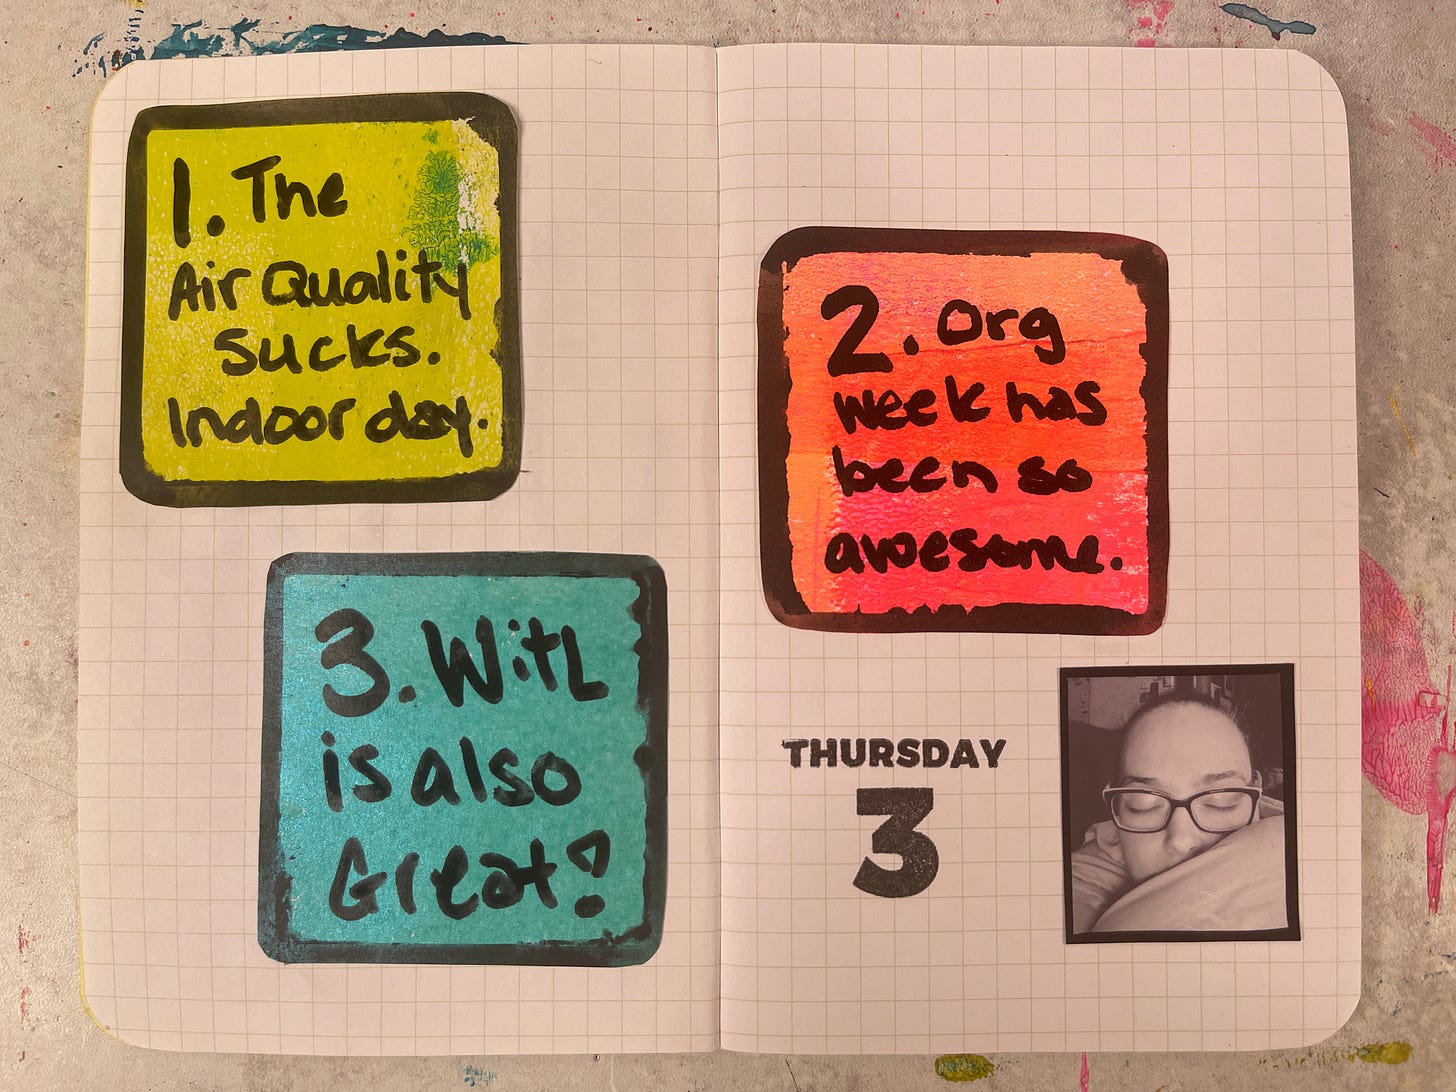 1. The
Air Quality
sucks.
Indoor day.
2. Org
week has
been so
awesome.
3. WitL
is also
Great!
THURSDAY
3